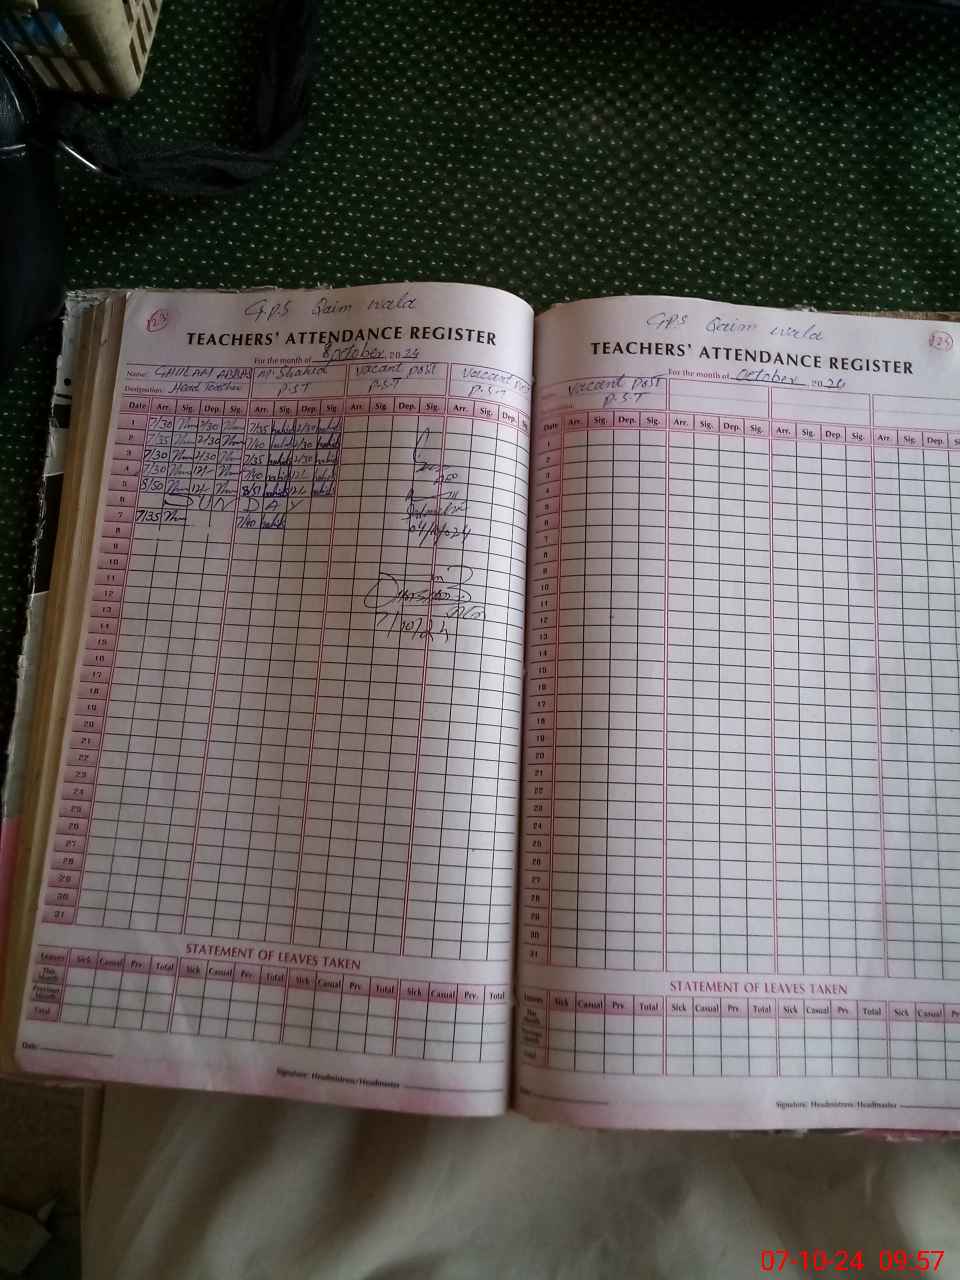 123
G.P.S Qaim wala
TEACHERS' ATTENDANCE REGISTER
For the month of October 2024
Name: GHULAM ABBAS M. Shahid vacant post vacant post
Designation: Head Teacher P.S.T P.S.T P.S.T
Date Arr. Sig. Dep. Sig. Arr. Sig. Dep. Sig. Arr. Sig. Dep. Sig. Arr. Sig. Dep.
1 7/30 2/30 7/35 2/30
2 7/35 2/30 7/40 2/30
3 7/30 2/30 7/35 2/30
4 7/30 12/- 7/40 12/-
5 8/50 12/- 8/51 12/-
6 SUNDAY
7 7/35 7/40
8
9
10
11
12
13
14
15
16
17
18
19
20
21
22
23
24
25
26
27
28
29
30
31
04/10/024
7/10/24
STATEMENT OF LEAVES TAKEN
Leaves Sick Casual Prv. Total Sick Casual Prv. Total Sick Casual Prv. Total Sick Casual Prv. Total
This Month
Previous Month
Total
Date:
Signature: Headmistress/Headmaster
G.P.S Qaim wala
TEACHERS' ATTENDANCE REGISTER
For the month of October 2024
vacant post
P.S.T
Date Arr. Sig. Dep. Sig. Arr. Sig. Dep. Sig. Arr. Sig. Dep. Sig. Arr. Sig. Dep.
1
2
3
4
5
6
7
8
9
10
11
12
13
14
15
16
17
18
19
20
21
22
23
24
25
26
27
28
29
30
31
STATEMENT OF LEAVES TAKEN
Leaves Sick Casual Prv. Total Sick Casual Prv. Total Sick Casual Prv. Total Sick Casual
This Month
Previous Month
Total
Signature: Headmistress/Headmaster
07-10-24 09:57